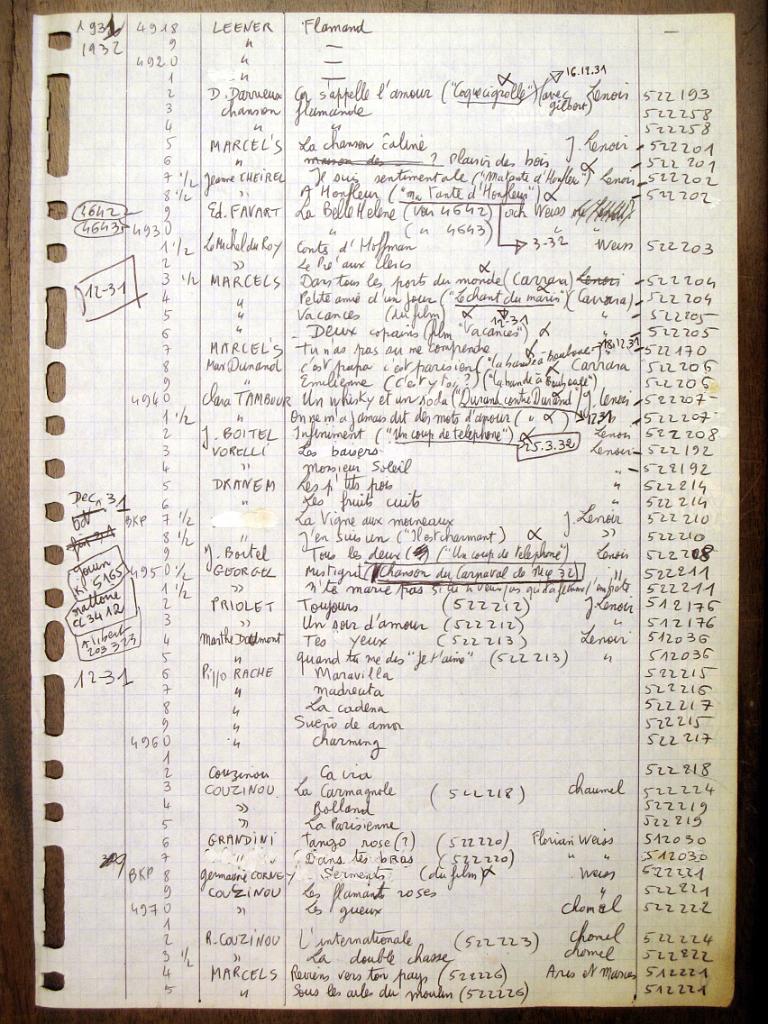 1931 4918 LEENER Flamand —
1932 9 " —
4920 " —
1 " —
2 D. Darrieux Ca s'appelle l'amour ("Coquecigrolle") (avec gilbert) 16.12.31 Lenoir 522193
3 chanson flamande 522258
4 " " 522258
5 MARCEL'S La chanson câline J. Lenoir - 522201
6 " ? plaisirs des bois " - 522201
7 1/2 Jeanne CHEIREL Je suis sentimentale ("Ma tante d'Honfleur") Lenoir - 522202
8 1/2 " A Honfleur ("ma Tante d'Honfleur") - 522202
4642 9 Ed. FAVART La Belle Helene (voir 4642) och Weiss
4643 4930 " " (" 4643)
1 1/2 Le Michel du Roy Conte d'Hoffman 3-32 Weiss 522203
2 " Le Pré aux clercs
12-31 3 1/2 MARCELS Dans tous les ports du monde (Carrara) - 522204
4 " Petite amie d'un jour ("Le chant du marin") (Carrara) - 522204
5 " Vacances (du film) 12-31 " - 522205
6 " - Deux copains (film "Vacances") " - 522205
7 MARCEL'S Tu n'as pas su me comprendre 18.12.31 - 522170
8 Max Dunand c'est papa c'est parisien ("la bande à Bouboule") Carrara 522206
9 " Emilienne (c'et y toi ?) ("la bande à Bouboule") " 522206
4940 Clara TAMBOUR Un whisky et un soda ("Durand contre Durand") J. Lenoir - 522207
1 1/2 " On ne m'a jamais dit des mots d'amour (") 12.31 " - 522207
2 J. BOITEL Infiniment ("Un coup de téléphone") 25.3.32 Lenoir 522208
3 VORELLI Les baisers Lenoir - 522192
4 " Monsieur Soleil " - 522192
5 DRANEM Les p'tits pois " 522214
Dec. 31 6 " Les fruits cuits " 522214
BKP 7 1/2 " La Vigne aux moineaux J. Lenoir 522210
8 1/2 " J'en suis un ("Il est charmant") " 522210
9 J. Boitel Tous les deux ("Un coup de telephone") Lenoir 522208
4950 1/2 GEORGEL Mistigri (Chanson du Carnaval de Nice 32) " 522211
Ki 5165 1 1/2 " N'te marie pas " 522211
cl 3412 2 PRIOLET Toujours (522212) J. Lenoir 512176
3 " Un soir d'amour (522212) " 512176
Alibert 203323 4 Marthe Dalmont Tes yeux (522213) Lenoir 512036
5 " quand tu me dis "je t'aime" (522213) " 512036
12-31 6 Pippo RACHE Maravilla 522215
7 " madreuta 522216
8 " La cadena 522217
9 " Sueño de amor 522215
4960 " charming 522217
1
2 Couzinou Ca ira 522218
3 COUZINOU La Carmagnole (522218) chaumel 522224
4 " Bolland 522219
5 " La Parisienne 522219
6 GRANDINI Tango rose (?) (522220) Florian Weiss 512030
7 " Dans tes bras (522220) " " 512030
BKP 8 germaine CORNEY Serments (du film) Weiss 522221
9 COUZINOU Les flamants roses " 522221
4970 " Les gueux chomel 522222
1
2 R. COUZINOU L'internationale (522223) chomel 522224
3 1/2 " La double chasse chomel 522222
4 MARCELS Reviens vers ton pays (522226) 512221
5 " Sous les ailes du moulin (522226) " 512221